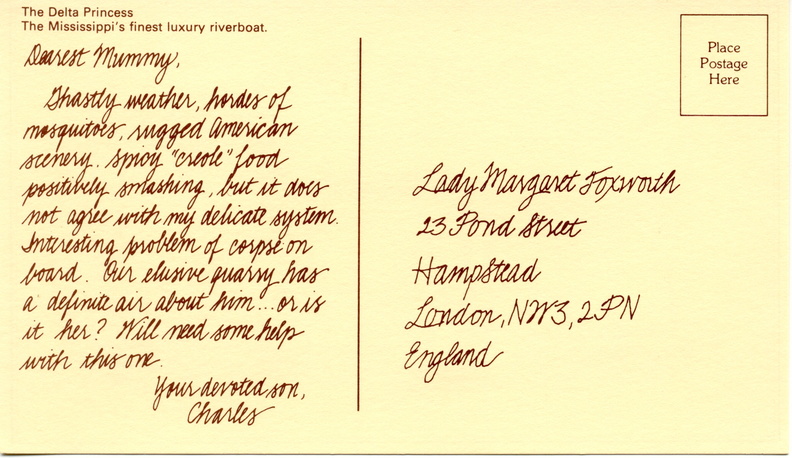 The Delta Princess
The Mississippi's finest luxury riverboat.
Dearest Mummy,
Ghastly weather, hordes of
mosquitoes, rugged American
scenery. Spicy "creole" food
positively smashing, but it does
not agree with my delicate system.
Interesting problem of corpse on
board. Our elusive quarry has
a definite air about him...or is
it her? Will need some help
with this one.
Your devoted son,
Charles
Place
Postage
Here
Lady Margaret Foxworth
23 Pond Street
Hampstead
London, NW3, 2PN
England